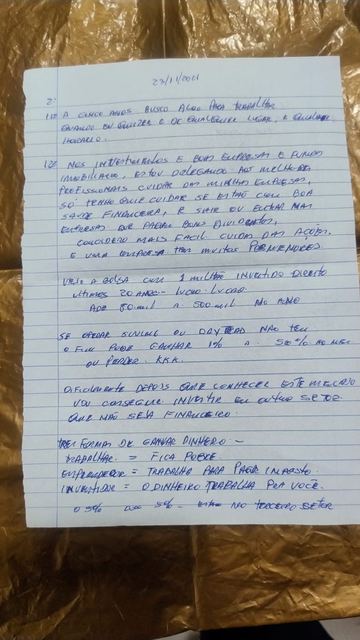 23/11/2021
2:
1.1: A CINCO ANOS BUSCO ALGO PARA TRABALHAR
QUANDO EU QUISER E DE QUALQUER LUGAR, E QUALQUER
HORARIO.
1.2: NOS INVESTIMENTOS E BOAS EMPRESAS E FUNDOS
IMOBILIARIO, ESTOU DELEGANDO AOS MELHORES
PROFISSIONAIS CUIDAR DAS MINHAS EMPRESAS,
SÓ TENHO QUE CUIDAR SE ESTÃO COM BOA
SAUDE FINANCEIRA, E SAIR OU ENTRAR NAS
EMPRESAS QUE PAGAM BONS DIVIDENDOS,
CONSIDERO MAIS FACIL CUIDAR DAS AÇOES,
E UMA EMPRESA TEM MUITOS PORMENORES
A BOLSA COM 1 MILHÃO INVESTIDO DIREITO
ULTIMOS 20 ANOS - LUCRO
80 MIL A 500 MIL NO ANO
SE OPERAR SWING OU DAY TRAD NÃO TEM
O FIM PODE GANHAR 1% A 50% NO MES
OU PERDER. KKK.
DIFICILMENTE DEPOIS QUE CONHECER ESTE MERCADO
VOU CONSEGUIR INVESTIR EM OUTRO SETOR
QUE NÃO SEJA FINANCEIRO.
TRES FORMAS DE GANHAR DINHEIRO -
TRABALHAR = FICA POBRE
EMPREENDEDOR = TRABALHA PARA PAGAR IMPOSTO.
INVESTIDOR = O DINHEIRO TRABALHA PRA VOCÊ.
5% NO TERCEIRO SETOR